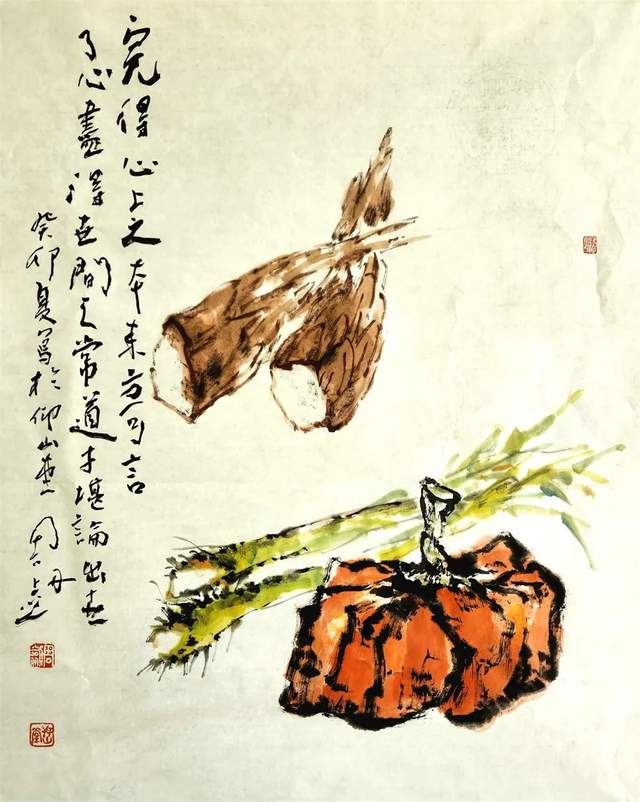 完得心上之本來方可言
了心盡得世間之常道才堪論出世
癸卯夏寫於仰山